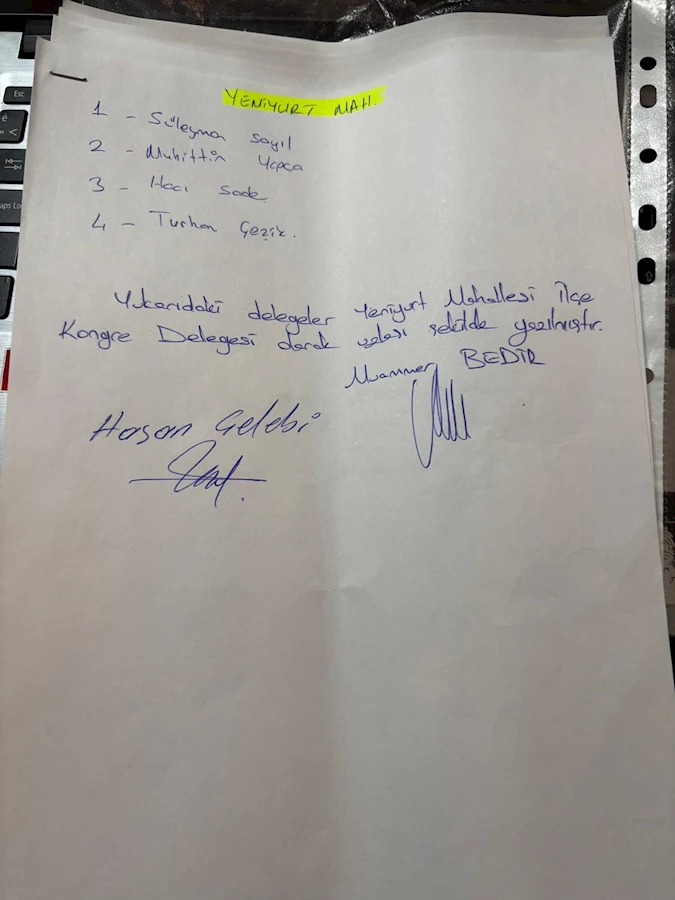 YENİYURT MAH.
1 - Süleyman Sayıl
2 - Muhittin Yapça
3 - Hacı Sade
4 - Turhan Çezik.
Yukarıdaki delegeler Yeniyurt Mahallesi İlçe
Kongre Delegesi olarak şekilde yazılmıştır.
Muammer BEDİR
Hasan Çelebi
Esc